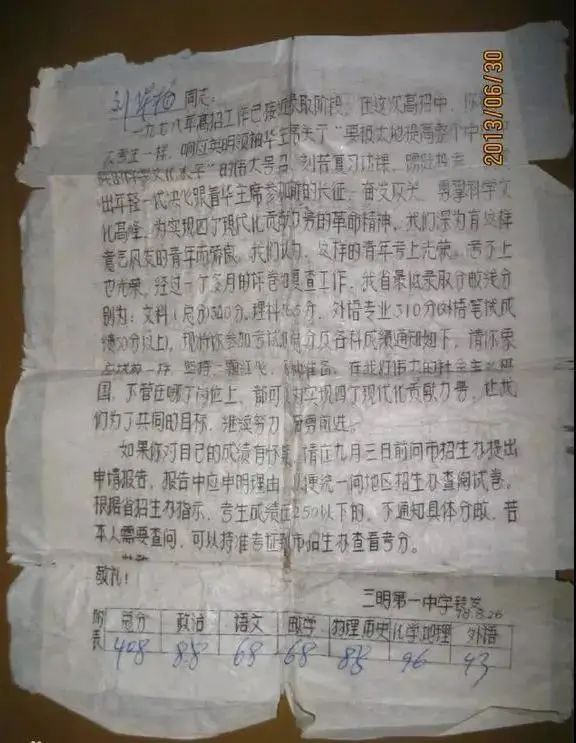 同志:
一九七八年高招工作已接近录取阶段。在这次高招中,你
考生一样,响应英明领袖华主席关于“要极大地提高整个中
科学文化水平”的伟大号召,刻苦复习功课,踊跃报考,
出年轻一代决心跟着华主席参加新的长征,奋发攻关,勇攀科学文
化高峰,为实现四个现代化贡献力量的革命精神。我们深为有这样
意气风发的青年而骄傲。我们认为,这样的青年考上光荣,考不上
也光荣。经过一个多月的评卷和复查工作,我省最低录取分数线分
别为:文科(总分)340分,理科 分,外语专业310分(外语笔试成
绩50分以上)。现将你参加考试的总分及各科成绩通知如下,请你象
一样,坚持一颗红心, 准备,在我们伟大的社会主义祖
国,不管在哪个岗位上,都可 为实现四个现代化贡献力量,让我
们为了共同的目标,继续努力 奋勇前进。
如果你对自己的成绩有怀疑,请在九月三日前向市招生办提出
申请报告。报告中应申明理由 以便统一向地区招生办查阅试卷。
根据省招生办指示,考生成绩在250以下的,不通知具体分数,若
本人需要查问,可以持准考证到市招生办查看考分。
敬礼!
三明第一中学转发
78.8.26
附表 总分 政治 语文 数学 物理 历史 化学 地理 外语
408 88 68 68 88 96 43
2013/06/30